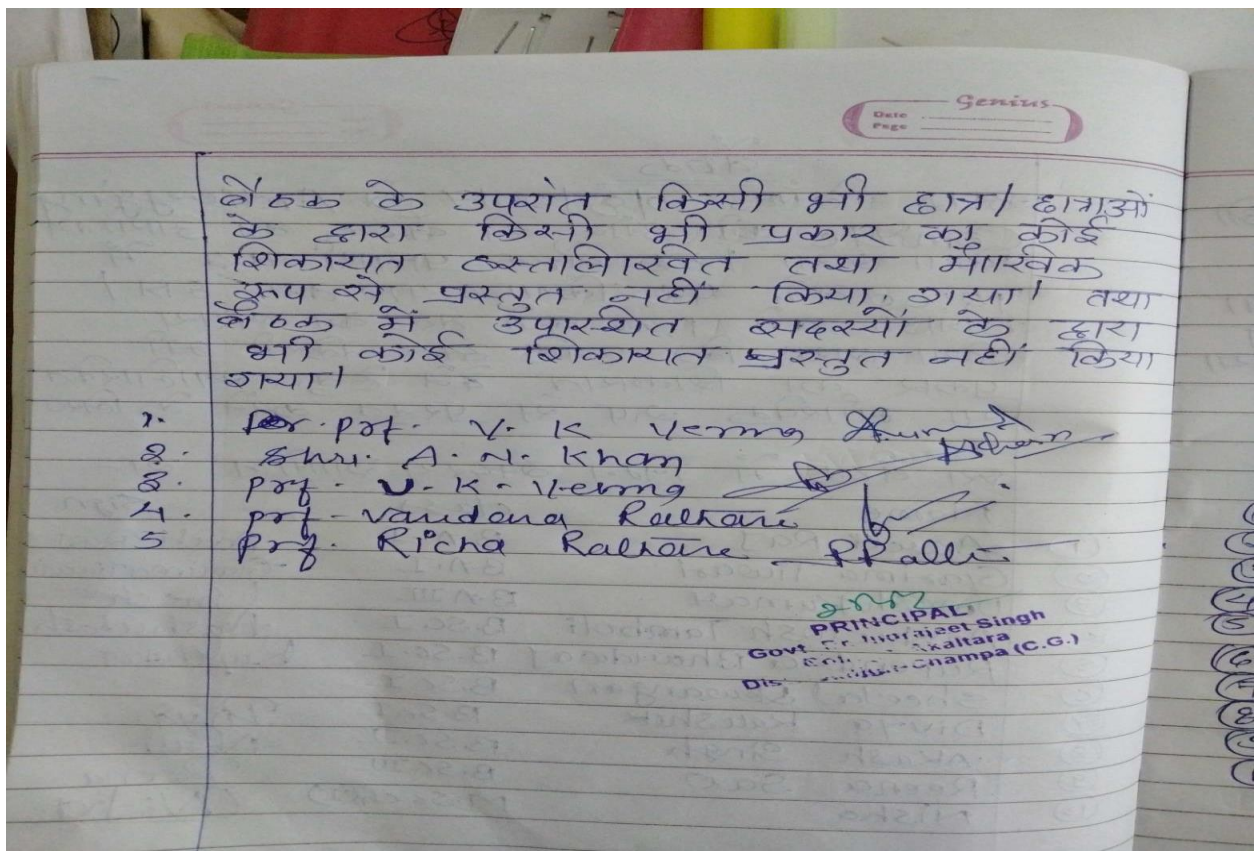 Genius
Date
Page
बैठक के उपरांत किसी भी छात्र/छात्राओं
के द्वारा किसी भी प्रकार का कोई
शिकायत हस्तलिखित तथा मौखिक
रूप से प्रस्तुत नहीं किया गया। तथा
बैठक में उपस्थित सदस्यों के द्वारा
भी कोई शिकायत प्रस्तुत नहीं किया
गया।
1. prf. V. K Verma
2. Shri. A. N. Khan
3. prf. V. K. Verma
4. prf. Vandana Rathore
5 prf. Richa Rathore
PRINCIPAL
Govt. Indrajeet Singh
Akaltara
Champa (C.G.)